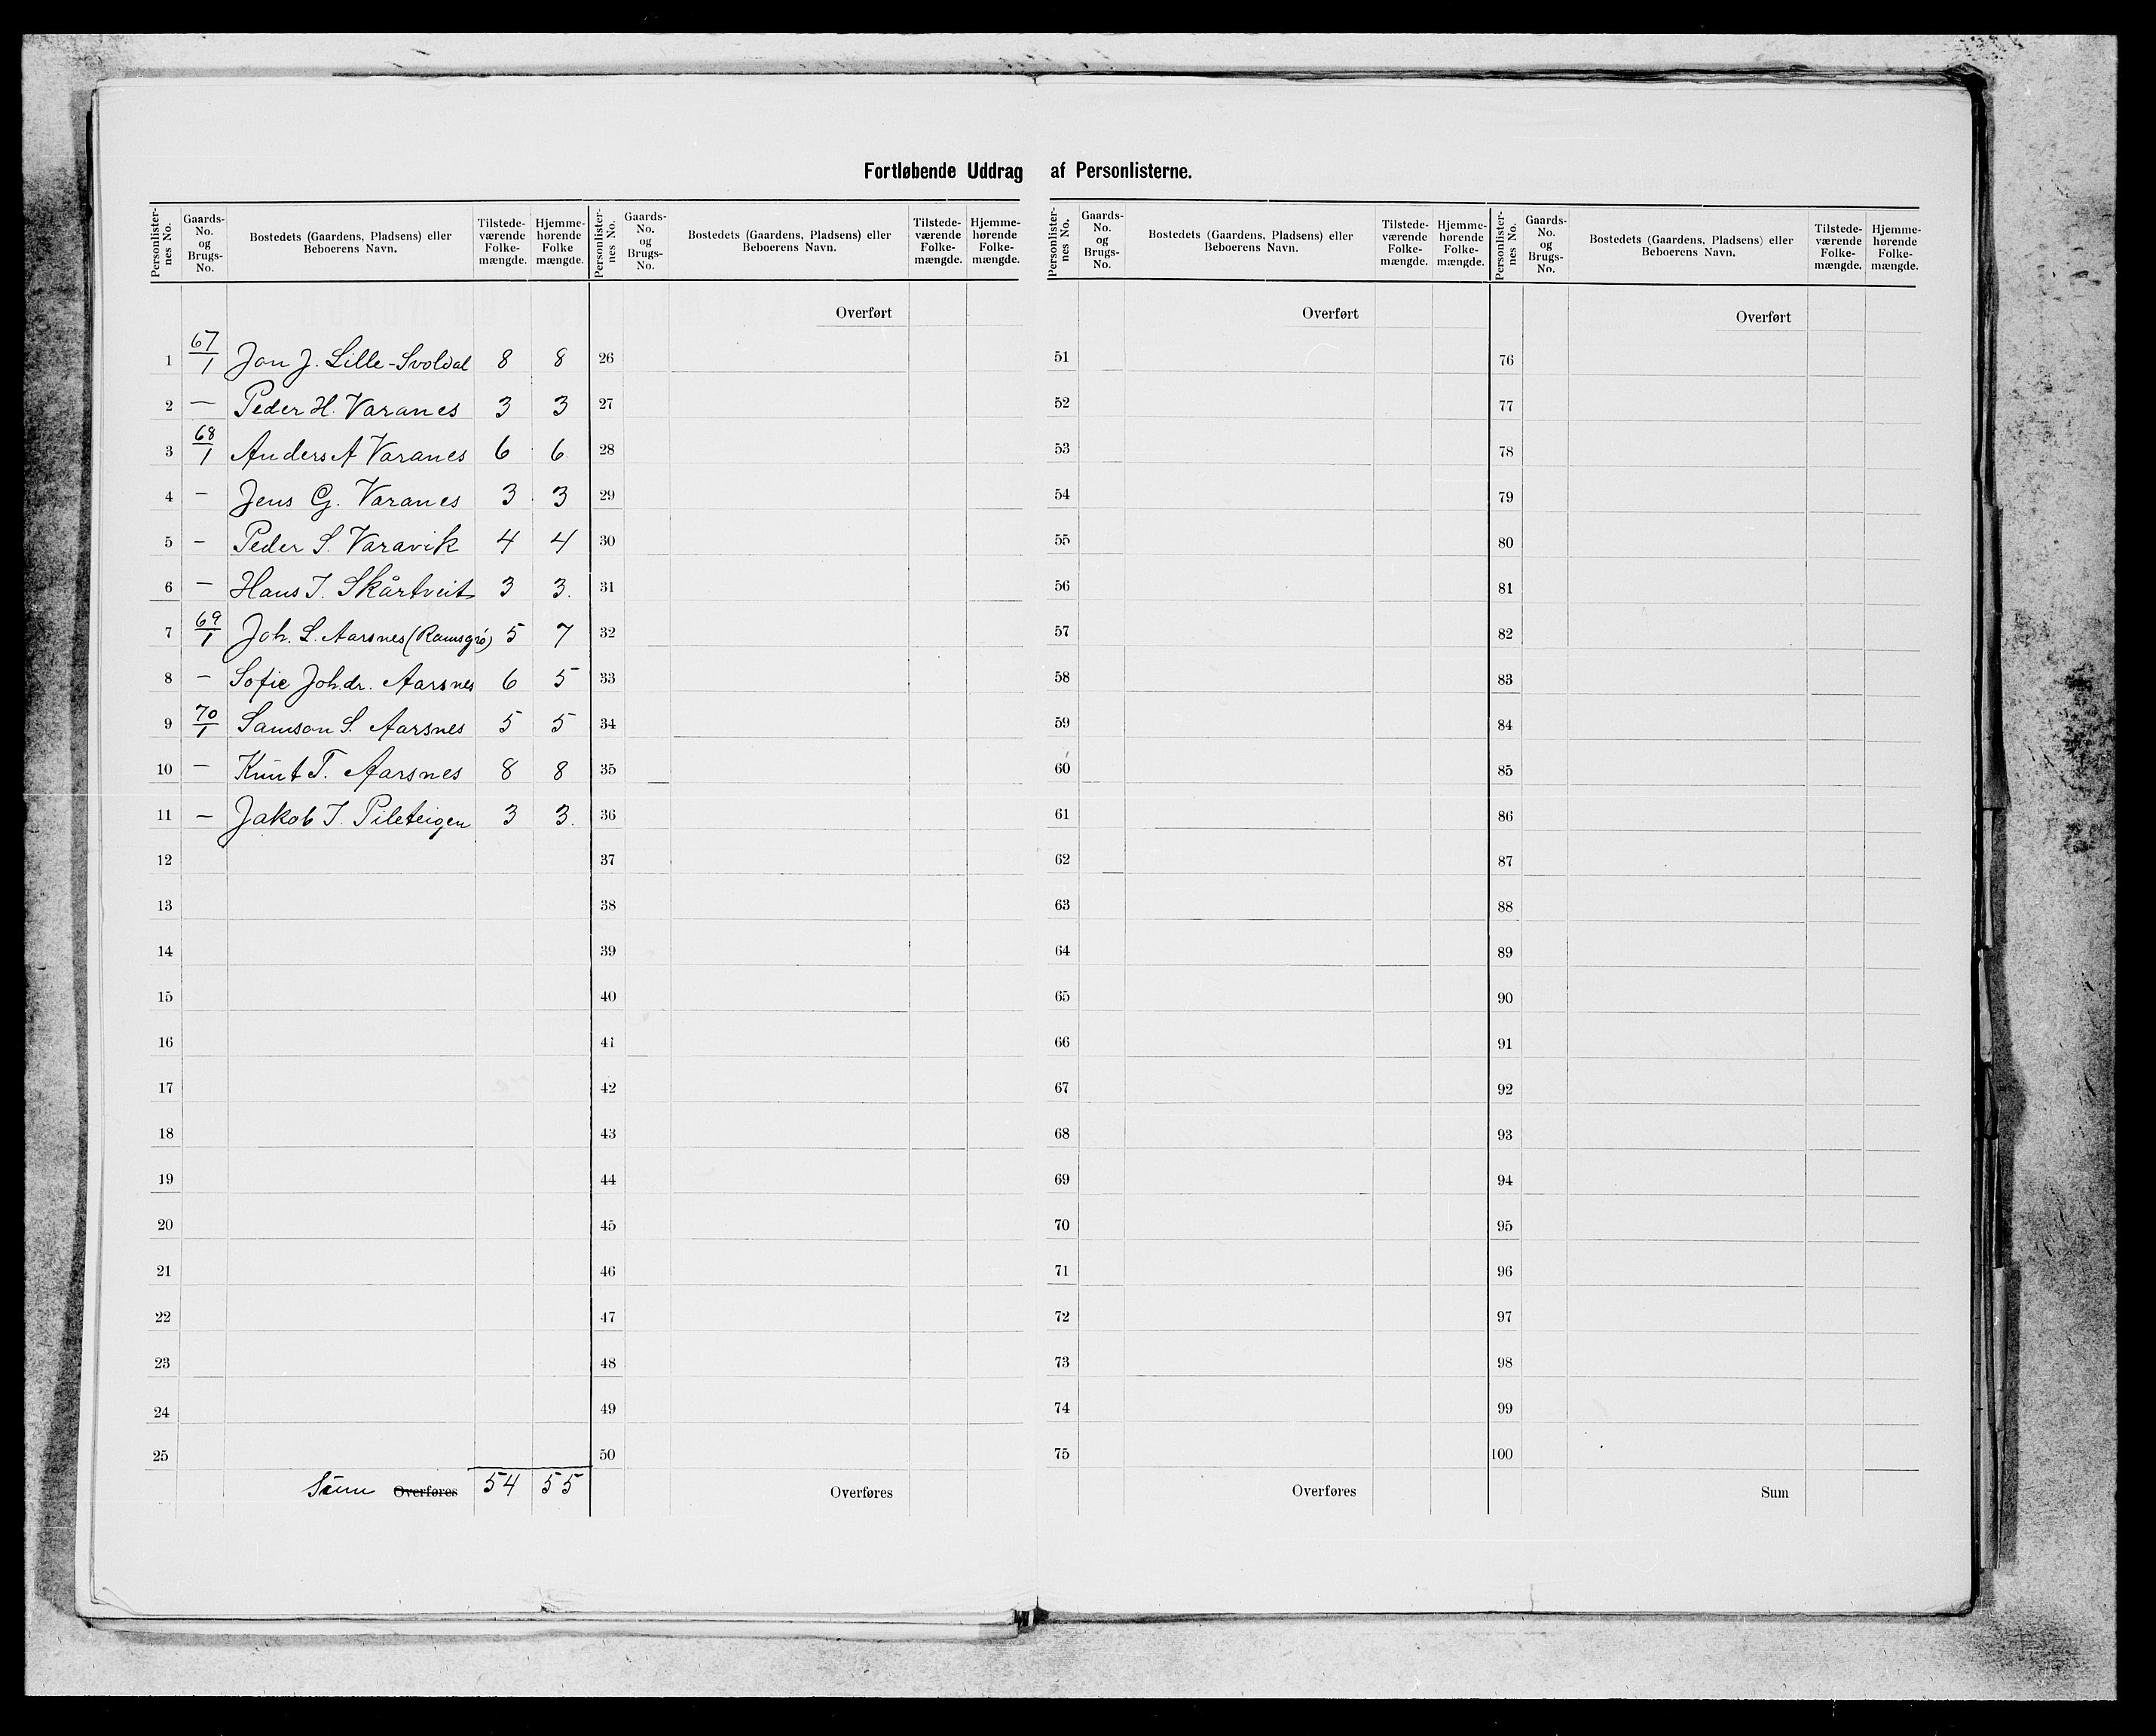 Fortløbende Uddrag af Personlisterne.
Personlister-nes No. | Gaards-No. og Brugs-No. | Bostedets (Gaardens, Pladsens) eller Beboerens Navn. | Tilstede-værende Folke-mængde. | Hjemme-hørende Folke mængde.
Personlister-nes No. | Gaards-No. og Brugs-No. | Bostedets (Gaardens, Pladsens) eller Beboerens Navn. | Tilstede-værende Folke-mængde. | Hjemme-hørende Folke-mængde.
Personlister-nes No. | Gaards-No. og Brugs-No. | Bostedets (Gaardens, Pladsens) eller Beboerens Navn. | Tilstede-værende Folke-mængde. | Hjemme-hørende Folke-mængde.
Personlister-nes No. | Gaards-No. og Brugs-No. | Bostedets (Gaardens, Pladsens) eller Beboerens Navn. | Tilstede-værende Folke-mængde. | Hjemme-hørende Folke-mængde.
1 67/1 Jon J. Lille-Svoldal 8 8
2 — Peder H. Varanes 3 3
3 68/1 Anders A Varanes 6 6
4 – Jens G. Varanes 3 3
5 – Peder S. Varavik 4 4
6 – Hans J. Skårtveit 3 3.
7 69/1 Joh. L. Aarsnes (Ramsgrø) 5 7
8 – Sofie Joh.dr. Aarsnes 6 5
9 70/1 Samson S. Aarsnes 5 5
10 – Knut T. Aarsnes 8 8
11 – Jakob J. Pileteigen 3 3.
12
13
14
15
16
17
18
19
20
21
22
23
24
25
Sum Overføres 54 55
Overført
26
27
28
29
30
31
32
33
34
35
36
37
38
39
40
41
42
43
44
45
46
47
48
49
50
Overføres
Overført
51
52
53
54
55
56
57
58
59
60
61
62
63
64
65
66
67
68
69
70
71
72
73
74
75
Overføres
Overført
76
77
78
79
80
81
82
83
84
85
86
87
88
89
90
91
92
93
94
95
96
97
98
99
100
Sum